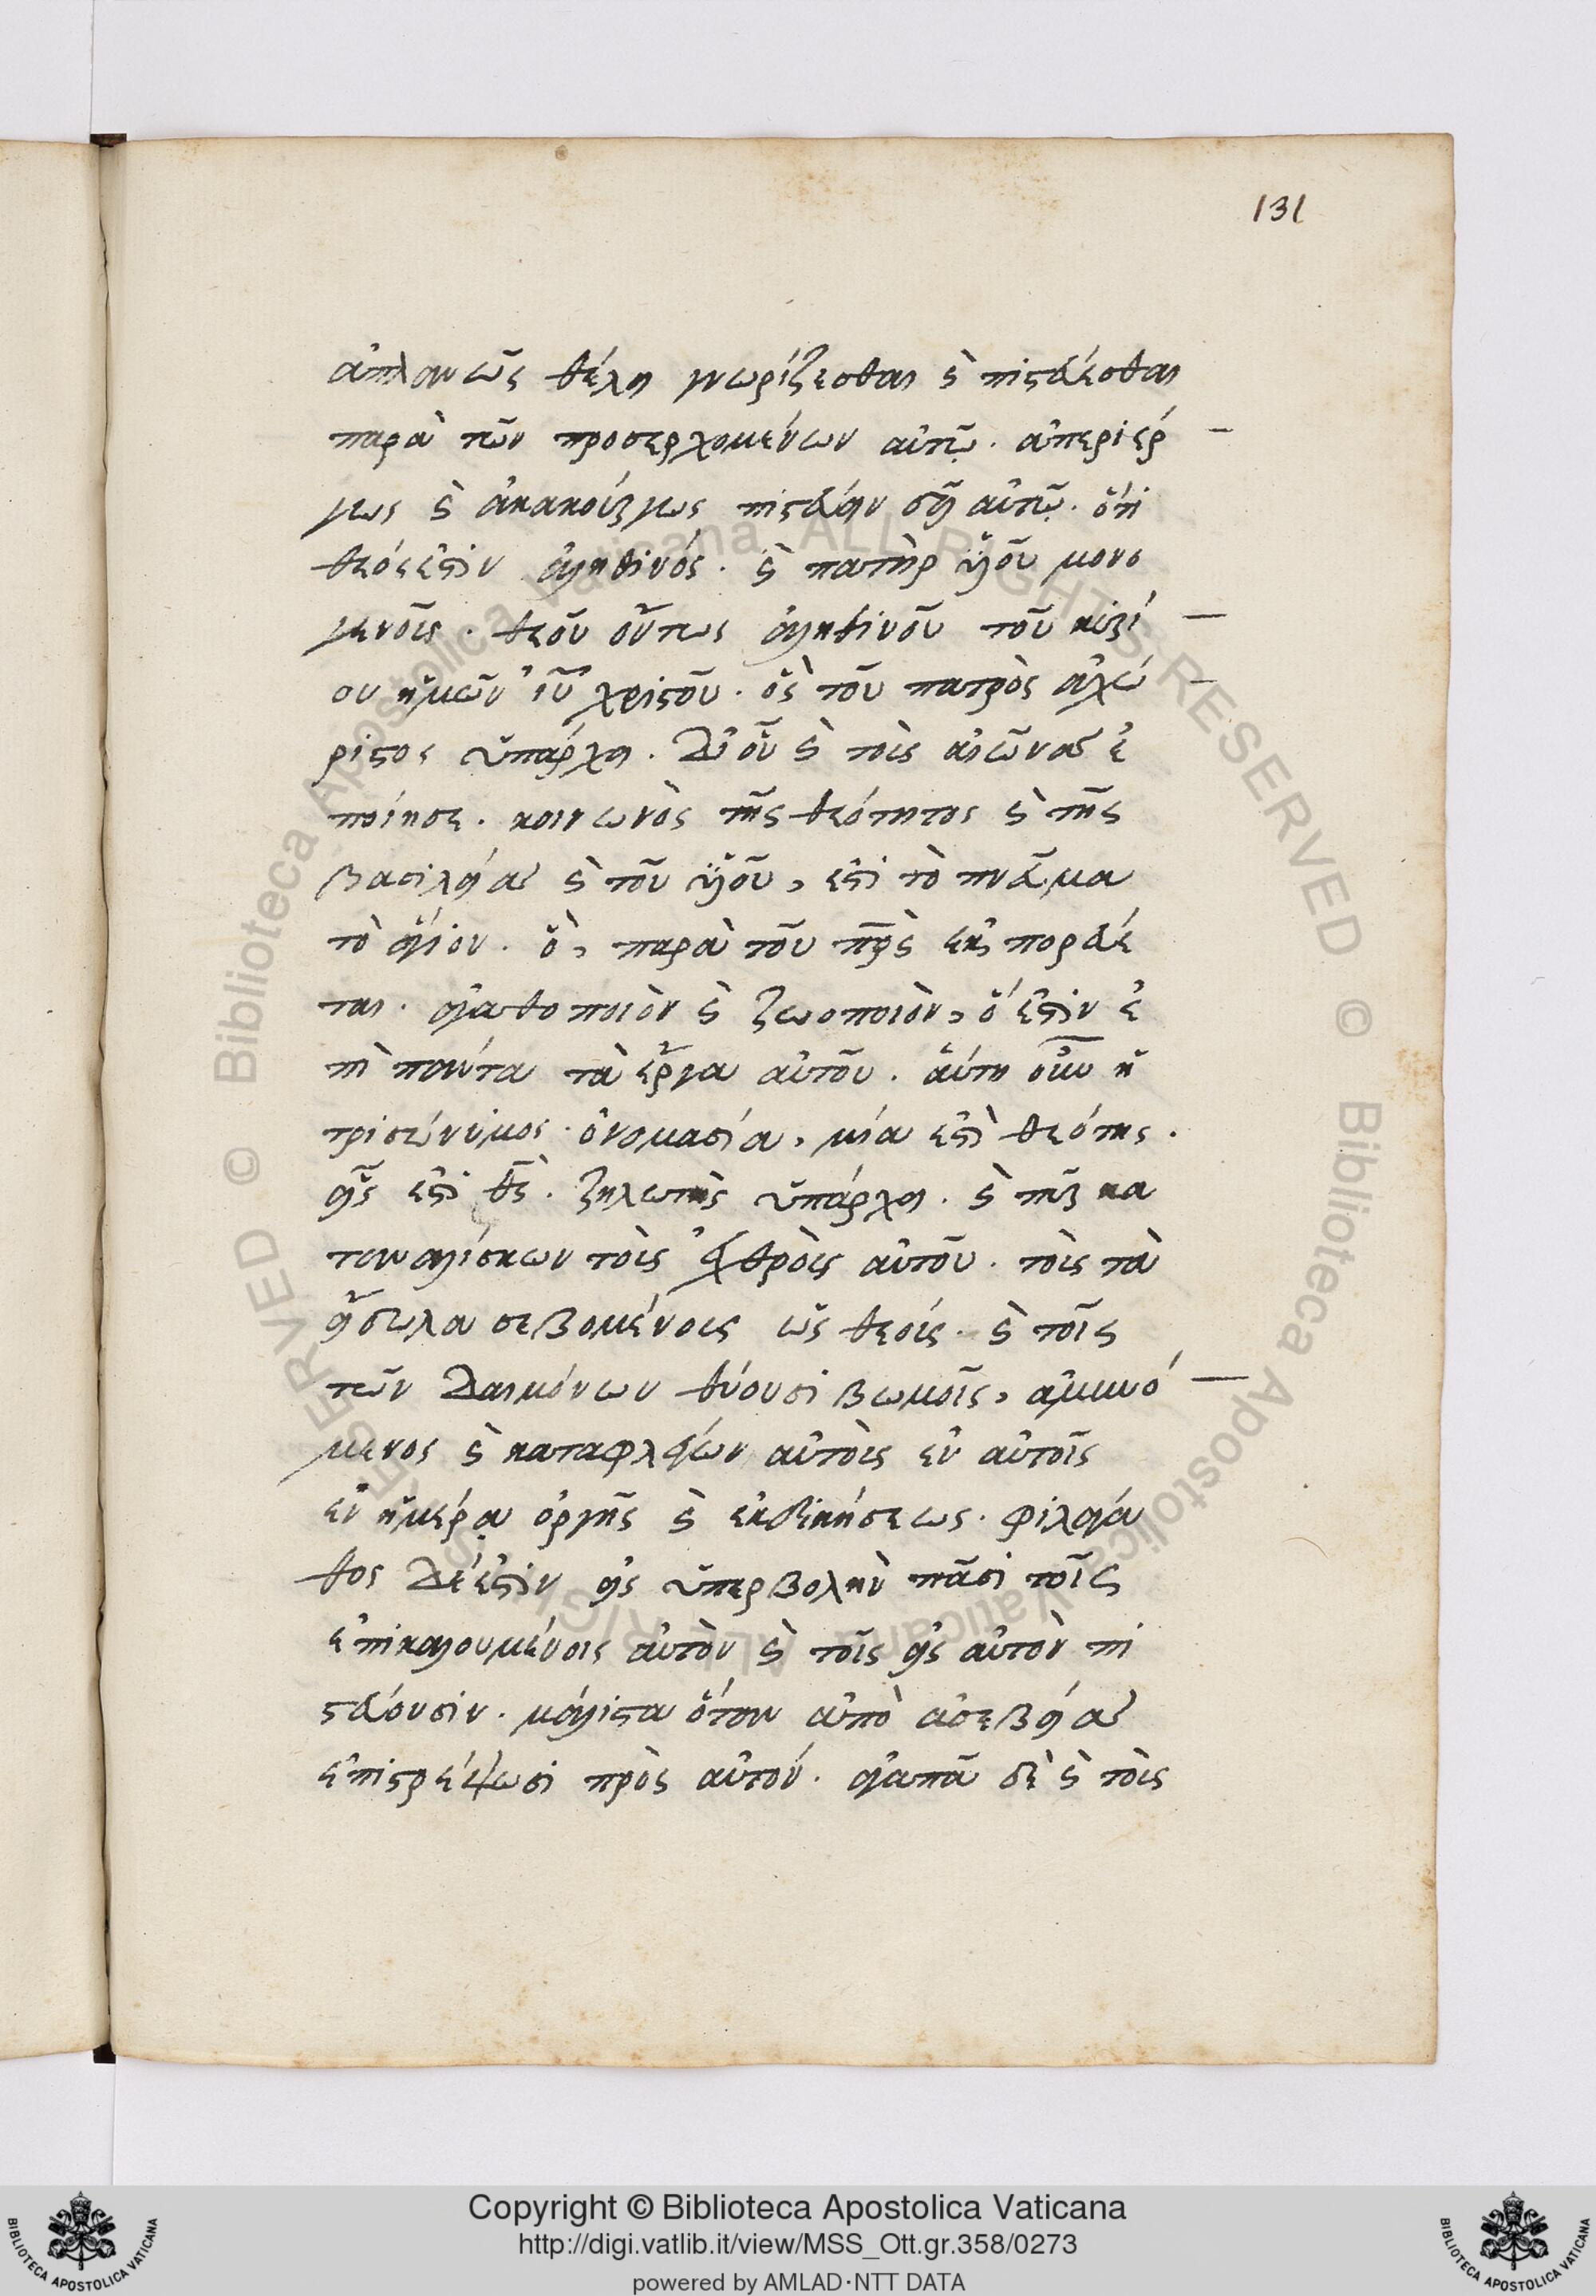 131
ἁπλανῶς θέλει γνωρίζεσθαι καὶ πιστεύεσθαι
παρὰ τῶν προσερχομένων αὐτῷ. ἀπεριέρ
γως καὶ ἀκακούργως πιστεύειν αὐτῷ. ὅτι
θεός ἐστιν ἀληθινός. καὶ πατὴρ υἱοῦ μονο
γενοῦς. θεοῦ ὄντως ἀληθινοῦ τοῦ κυρί
ου ἡμῶν ἰυ χριστοῦ. ὃς τοῦ πατρὸς ἀχώ
ριστος ὑπάρχει. δι' οὗ καὶ τοὺς αἰῶνας ἐ
ποίησε. κοινωνὸς τῆς θεότητος καὶ τῆς
βασιλείας καὶ τοῦ υἱοῦ, ἐστὶ τὸ πνεῦμα
τὸ ἅγιον. ὃ, παρὰ τοῦ πρς ἐκπορεύε
ται. ἀγαθοποιὸν καὶ ζωοποιὸν, ὅ ἐστιν ἐ
πὶ πάντα τὰ ἔργα αὐτοῦ. αὕτη οὖν ἡ
τρισώνυμος ὀνομασία, μία ἐστὶ θεότης.
εἷς ἐστὶ θς. ζηλωτὴς ὑπάρχει. καὶ πῦρ κα
ταναλίσκων τοὺς ἐχθροὺς αὐτοῦ. τοὺς τὰ
εἴδωλα σεβομένους ὡς θεούς. καὶ τοῖς
τῶν δαιμόνων θύουσι βωμοῖς, ἀμυνό
μενος καὶ καταφλέγων αὐτοὺς ἐν αὐτοῖς
ἐν ἡμέρᾳ ὀργῆς καὶ ἐκδικήσεως. φιλάγα
θος δέ ἐστιν εἰς ὑπερβολὴν πᾶσι τοῖς
ἐπικαλουμένοις αὐτὸν καὶ τοῖς εἰς αὐτὸν πι
στεύουσιν. μάλιστα ὅταν ἀπὸ ἀσεβείας
ἐπιστρέψωσι πρὸς αὐτόν. ἀγαπᾷ δὲ καὶ τοὺς
© Biblioteca Apostolica Vaticana ALL RIGHTS RESERVED
© Biblioteca Apostolica Vaticana ALL RIGHTS RESERVED
Copyright © Biblioteca Apostolica Vaticana
http://digi.vatlib.it/view/MSS_Ott.gr.358/0273
powered by AMLAD·NTT DATA
BIBLIOTECA APOSTOLICA VATICANA
BIBLIOTECA APOSTOLICA VATICANA